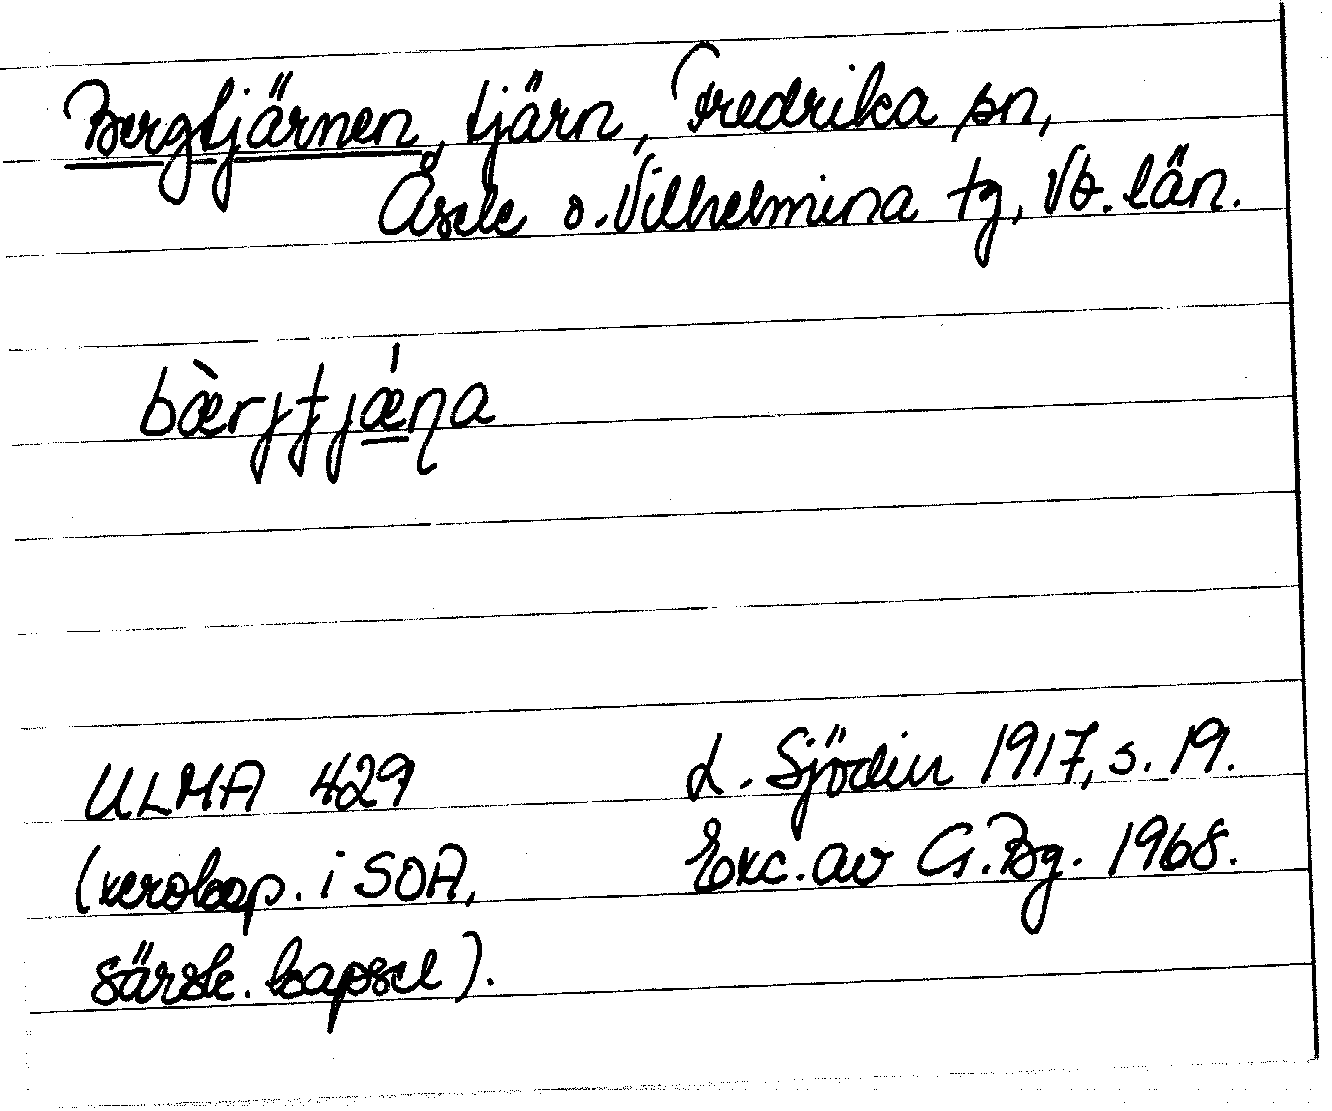 Bergtjärnen, tjärn, Fredrika sn,
Åsele o. Vilhelmina tg, Vb. län.
bæ̀rjtjǽ̱ɳa
ULMA 429
L. Sjödin 1917, s. 19.
(xerokop. i SOA,
Exc. av G. Bg. 1968.
särsk. kapsel).